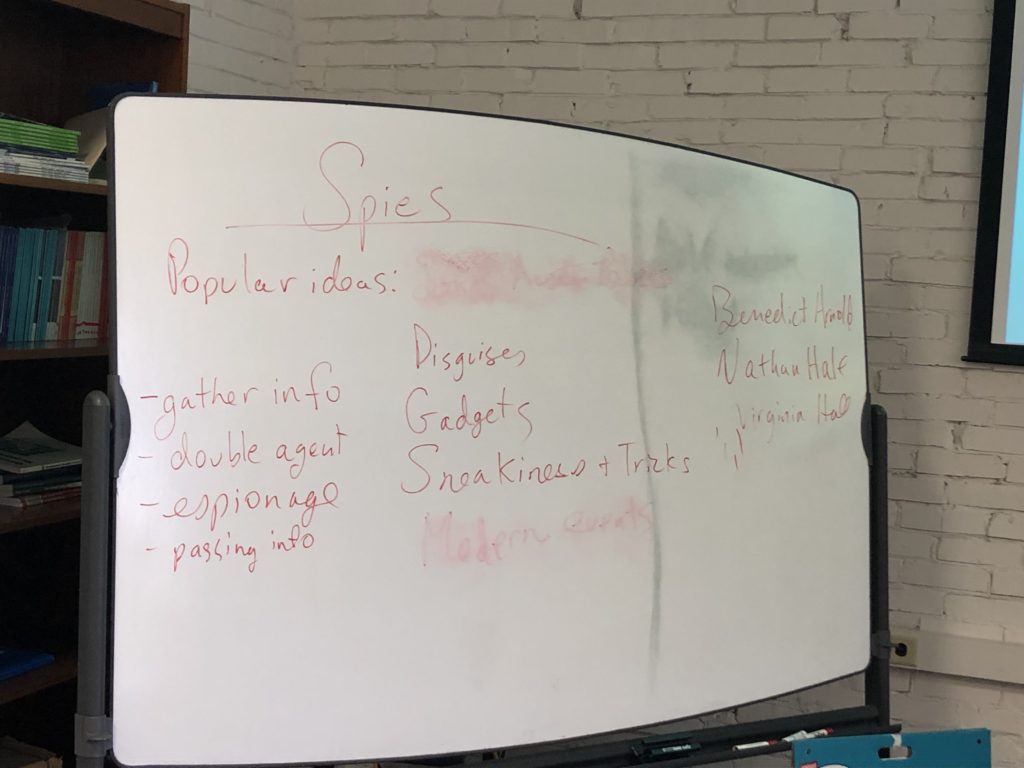 Spies
Popular ideas:
- gather info
- double agent
- espionage
- passing info
Disguises
Gadgets
Sneakiness + Tricks
Modern events
Benedict Arnold
Nathan Hale
Virginia Hall